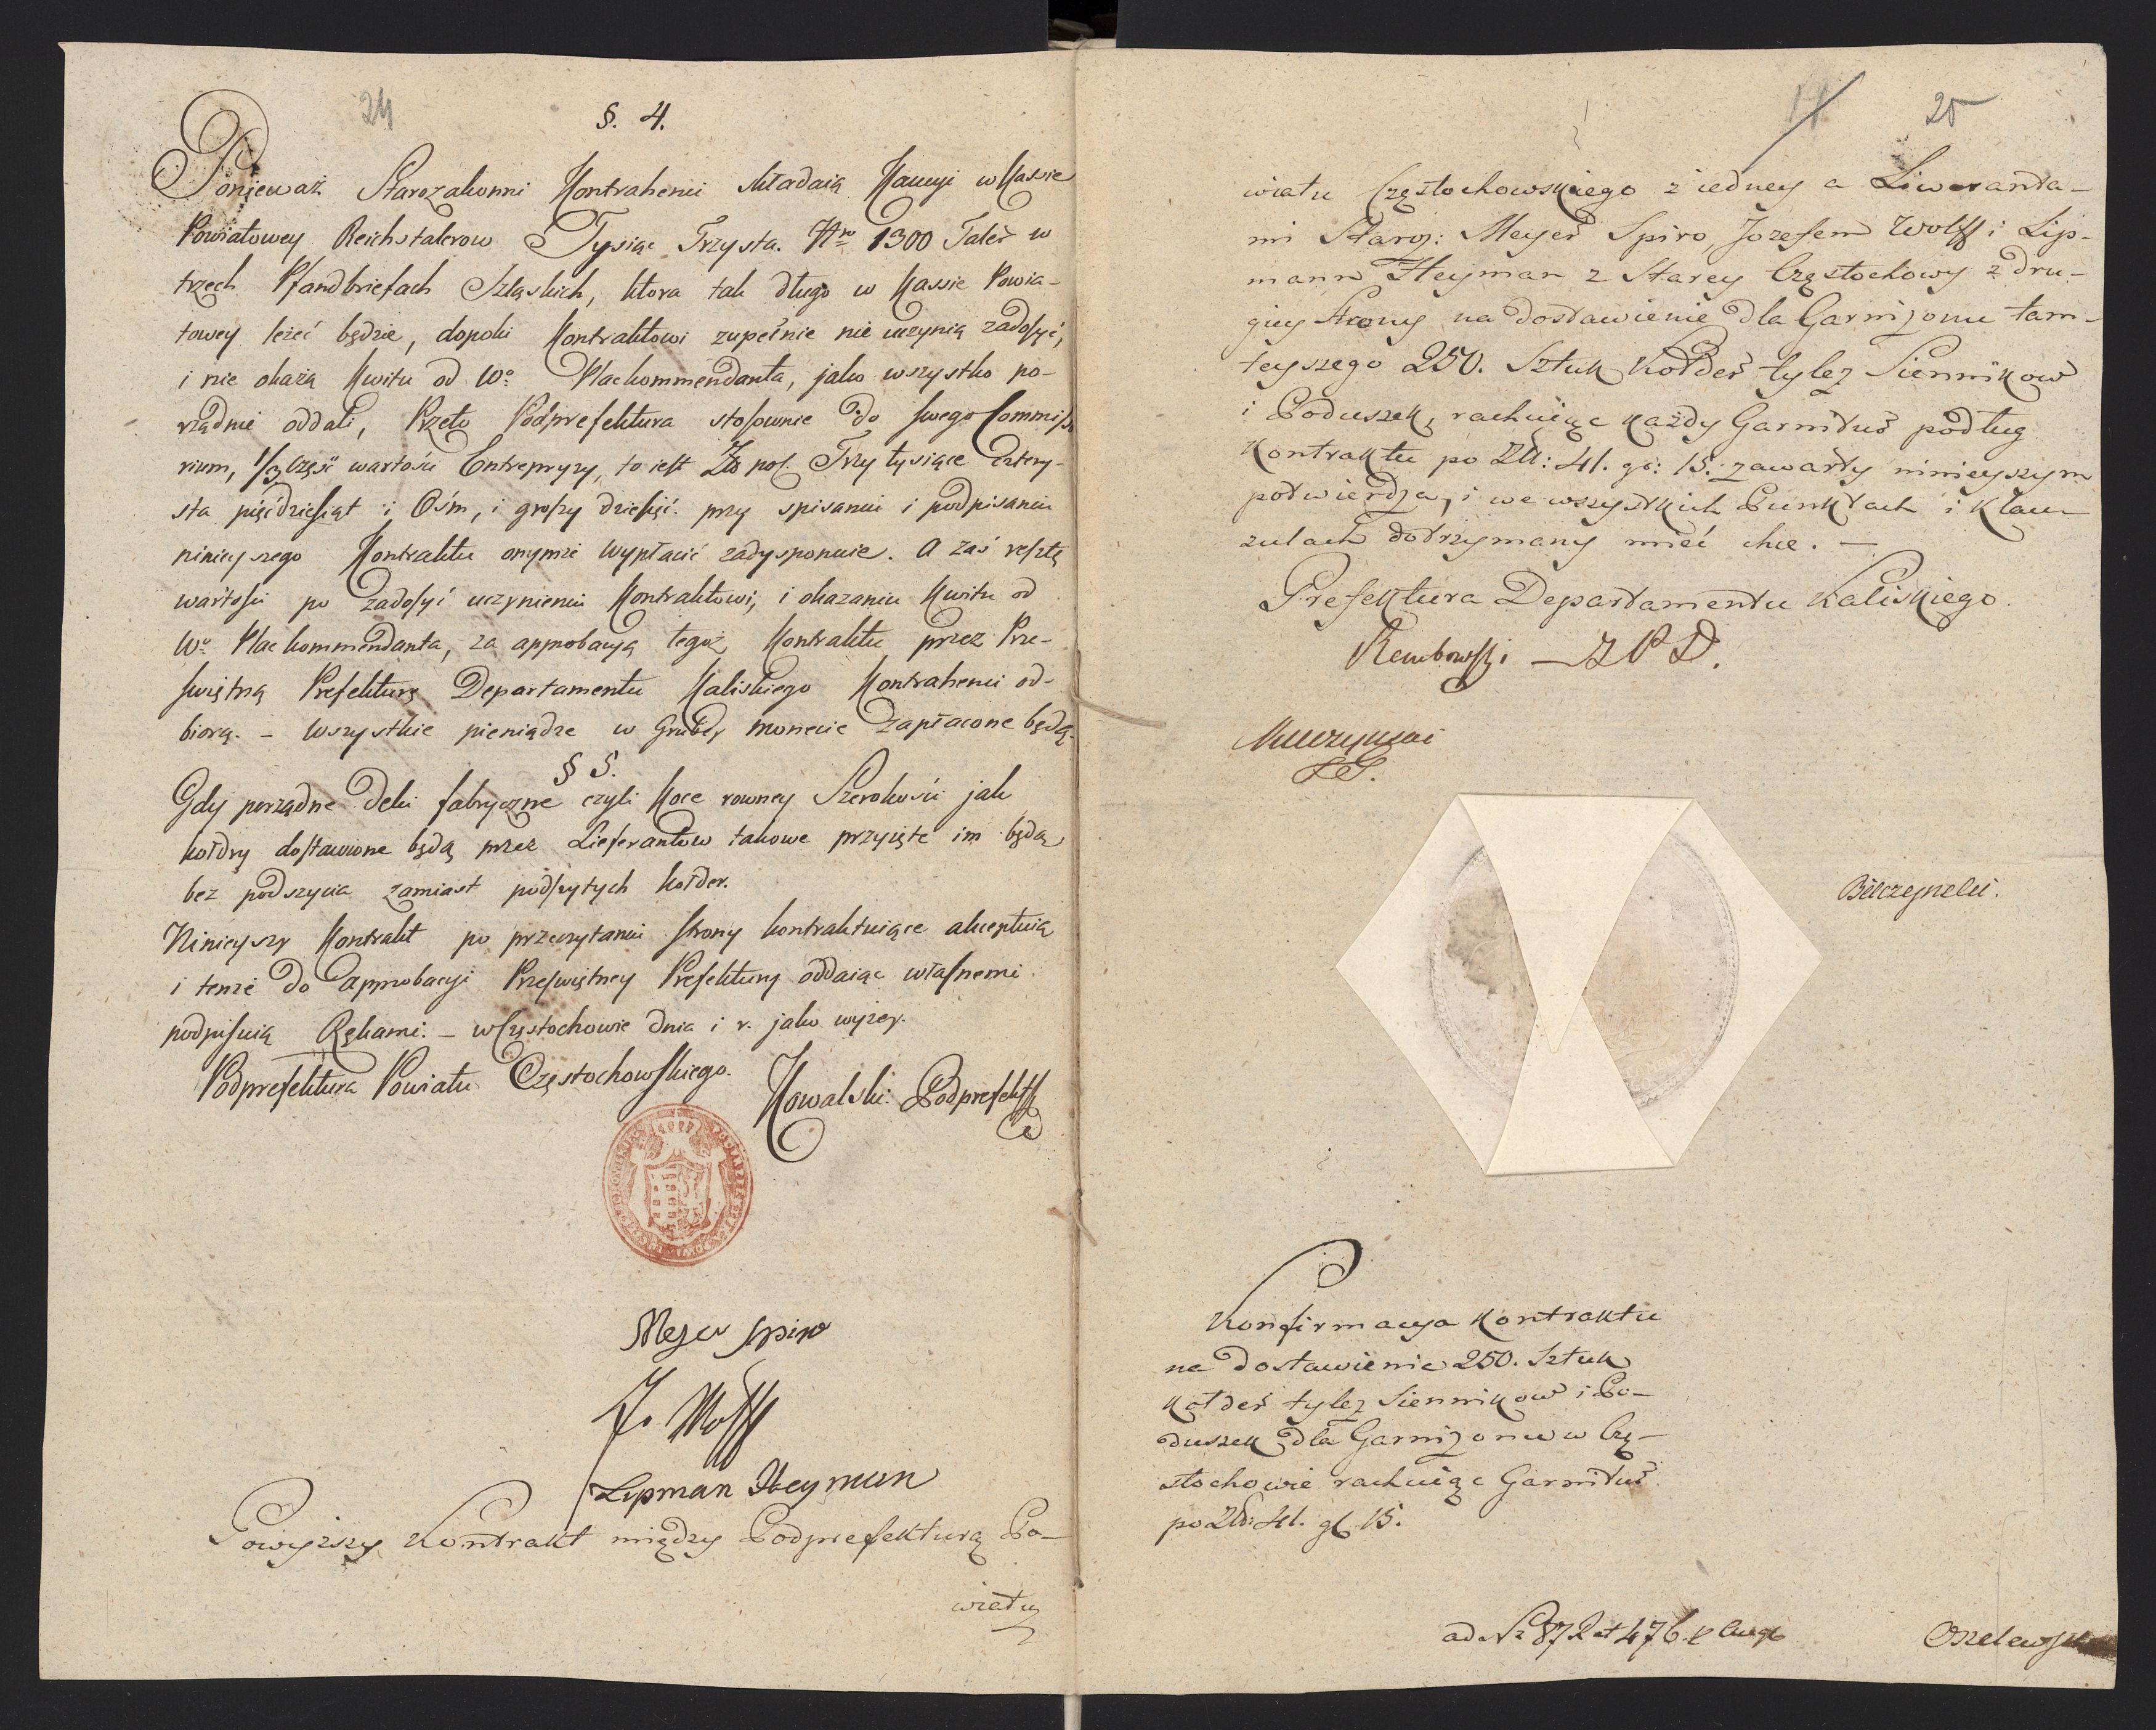 24
§. 4.
Ponieważ Starozakonni Kontrahenci składaią Kaucyi w Kassie
Powiatowey Reichstalerow Tysiąc Trzysta. Nro 1300 Taler w
trzech Pfandbriefach Szląskich, ktora tak długo w Kassie Powia-
towey leżeć będzie, dopoki Kontraktowi zupełnie nie uczynią zadosyć,
i nie okażą Kwitu od Wo Plackommendanta, jako wszystko po-
rządnie oddali, Przeto Podprefektura stosownie do swego Commisso
rium, 1/3 Część wartości Entrepryzy, to iest Zło pol. Trzy tysiące cztery-
sta pięćdziesiąt i Ośm, i groszy dziesięć. przy spisaniu i podpisaniu
ninieyszego Kontraktu onymże wypłacić zadysponuie. A zaś resztę
wartości po zadosyć uczynieniu Kontraktowi, i okazaniu Kwitu od
Wo Plackommendanta, za approbacyą tegoż Kontraktu przez Prze-
świętną Prefekturę Departamentu Kaliskiego Kontrahenci od-
biorą. - Wszystkie pieniądze w Grubey monecie zapłacone będą.
§ 5.
Gdy porządne deki fabryczne czyli Koce rowney Szerokości jak
kołdry dostawione będą przez Lieferantow takowe przyięte im będą
bez podszycia zamiast podszytych kołder.
Ninieyszy Kontrakt po przeczytaniu strony kontraktuiące akceptuią
i tenże do approbacyi Przeświętney Prefektury oddaiąc własnemi
podpisuią Rękami. - w Częstochowie dnia i r. jako wyżey.
Podprefektura Powiatu Częstochowskiego.
Kowalski Podprefekt
Meyer Spiro
J. Wolff
Lipman Heyman
Powyższy Kontrakt między Podprefekturą Po-
wiatu
11 25
wiatu Częstochowskiego z iedney a Liweranta-
mi Staroz: Meyer Spiro Jozefem Wolff i Lip-
mann Heyman z Starey Częstochowy z dru-
giey Strony na dostawienie dla Garnizonu tam-
teyszego 250. Sztuk Kołder tylez Siennikow
i Poduszek, rachuiąc każdy Garnitur podług
Kontraktu po Zł: 41. gr: 15. zawarty ninieyszym
potwierdza, i we wszystkich Punktach i Klau-
zulach dotrzymany mieć chce. -
Prefektura Departamentu Kaliskiego.
Rembowski - Z P D.
Bilczynski.
Konfirmacya Kontraktu
na dostawienie 250. Sztuk
Kołder tylez Siennikow i Po-
duszek dla Garnizonu w Czę-
stochowie rachuiąc Garnitur
po Zł: 41. gr 15.
ad Nr 872 et 476.